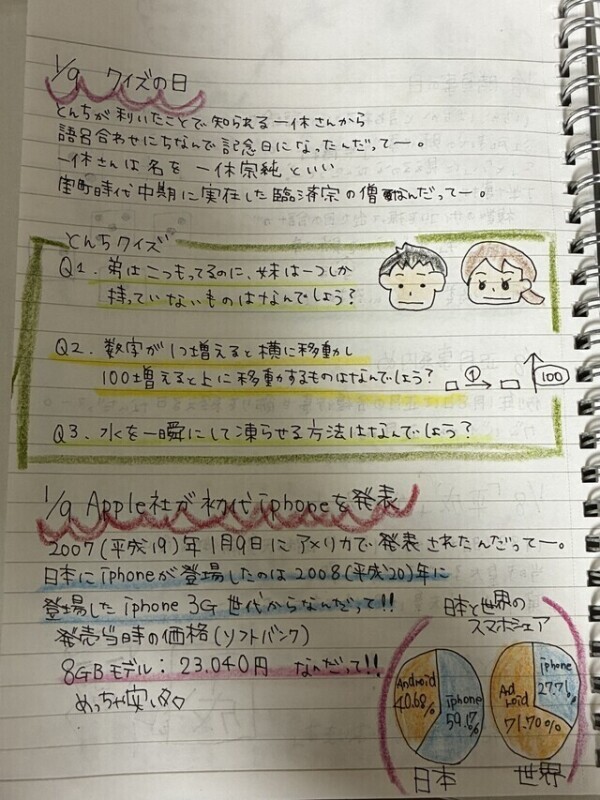 1/9 クイズの日
とんちが利いたことで知られる一休さんから
語呂合わせにちなんで記念日になったんだってー。
一休さんは名を一休宗純といい
室町時代中期に実在した臨済宗の僧なんだってー。
とんちクイズ
Q1. 弟は二つもってるのに、妹は一つしか
持っていないものはなんでしょう?
Q2. 数字が1つ増えると横に移動し
100増えると上に移動するものはなんでしょう?
① 100
Q3. 水を一瞬にして凍らせる方法はなんでしょう?
1/9 Apple社が初代iphoneを発表
2007(平成19)年1月9日にアメリカで発表されたんだってー。
日本にiphoneが登場したのは2008(平成20)年に
登場したiphone 3G世代からなんだって!!
発売当時の価格(ソフトバンク)
8GBモデル: 23.040円 なんだって!!
めっちゃ安い
日本と世界の
スマホシェア
Android
40.68%
iphone
59.17%
日本
iphone
27.71%
Ad
roid
71.70%
世界